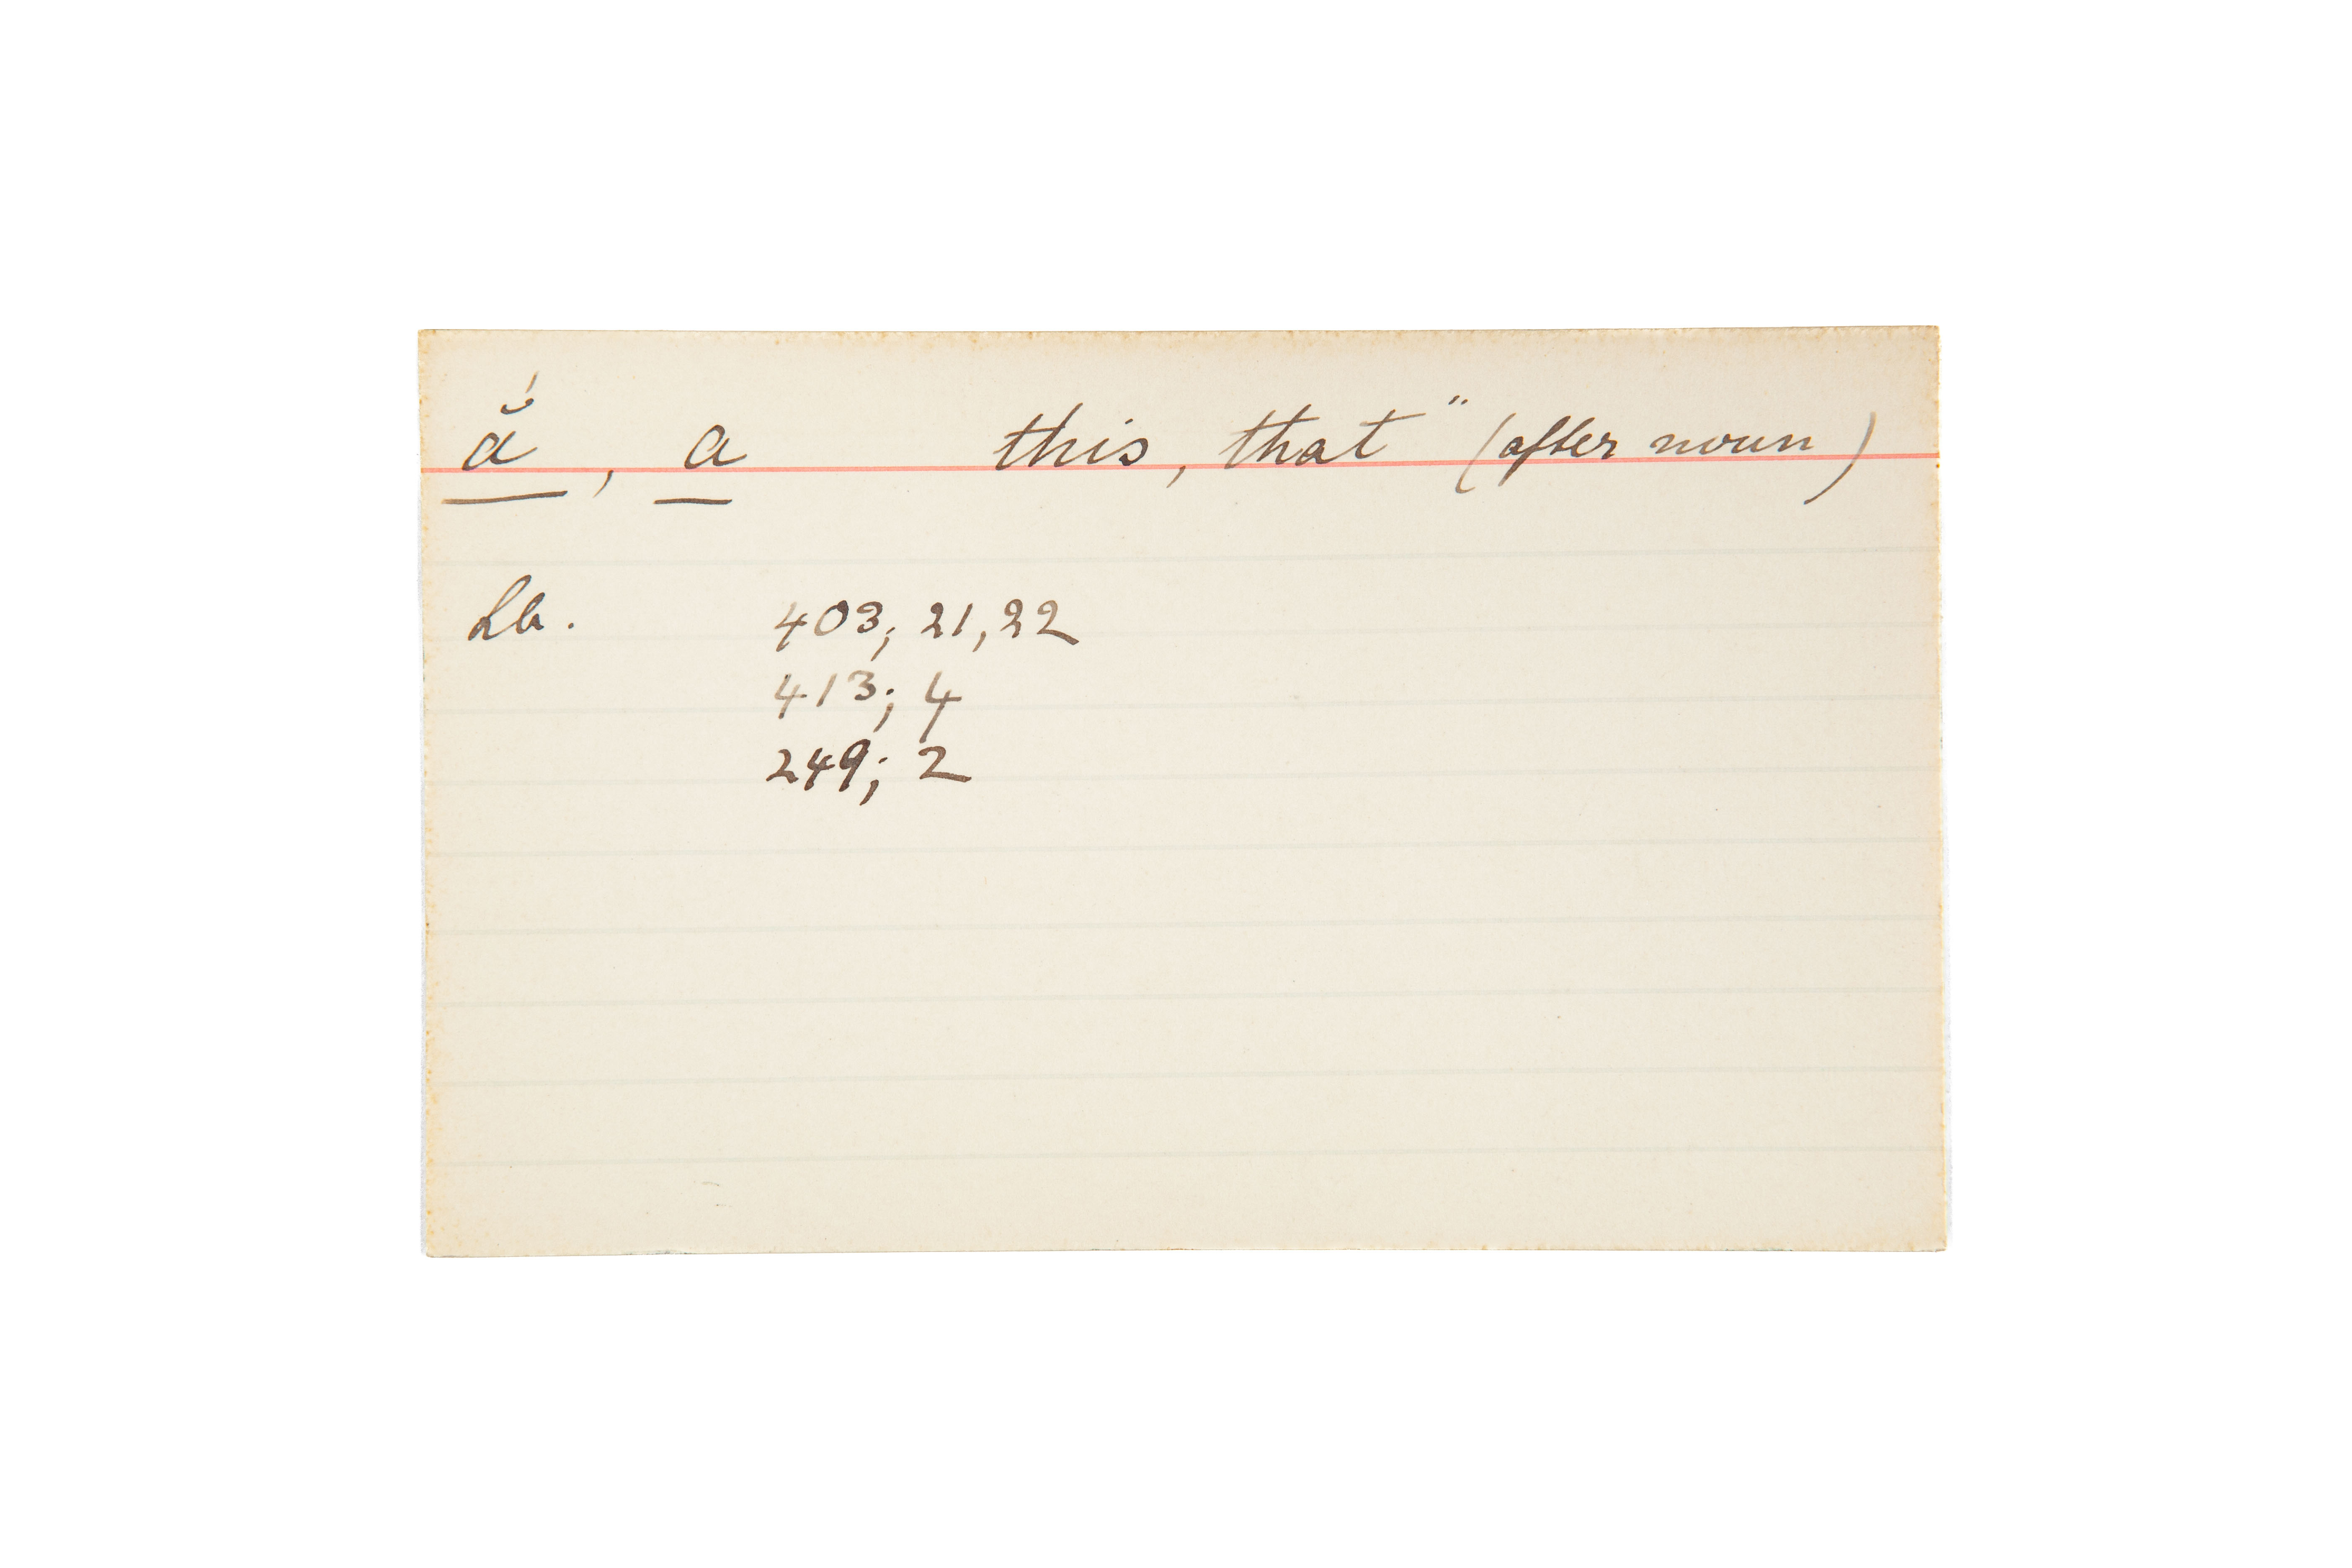 ắ , a this, that" (after noun)
Lb. 403; 21, 22
413; 4
249; 2